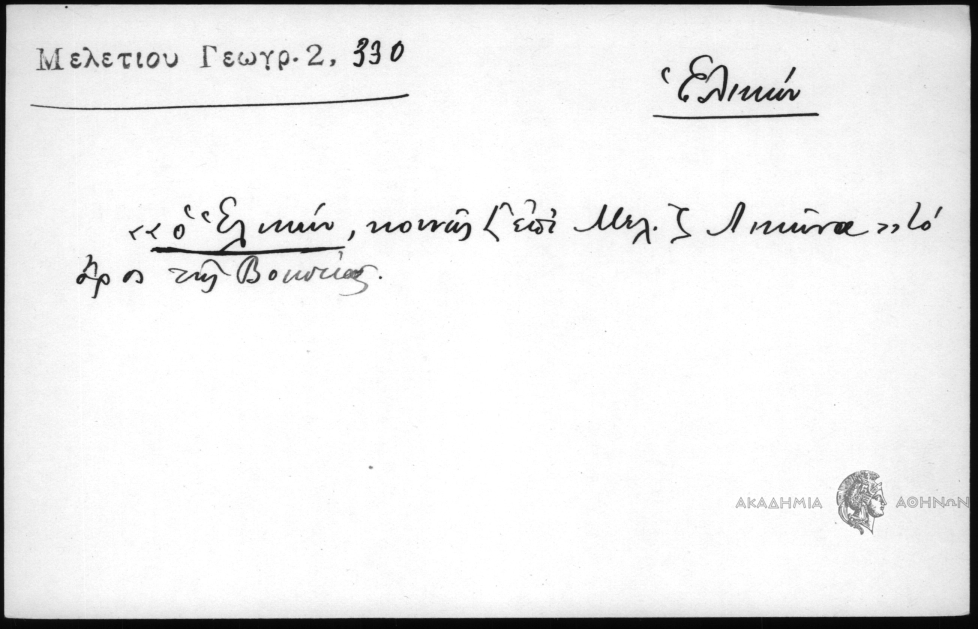 Μελετιου Γεωγρ. 2, 330
Ἑλικών
«ὁ Ἑλικών, κοινῶς [ἐπὶ Μελ.] Λικῶνα» τὸ
ὄρος τῆς Βοιωτίας.
ΑΚΑΔΗΜΙΑ ΑΘΗΝΩΝ